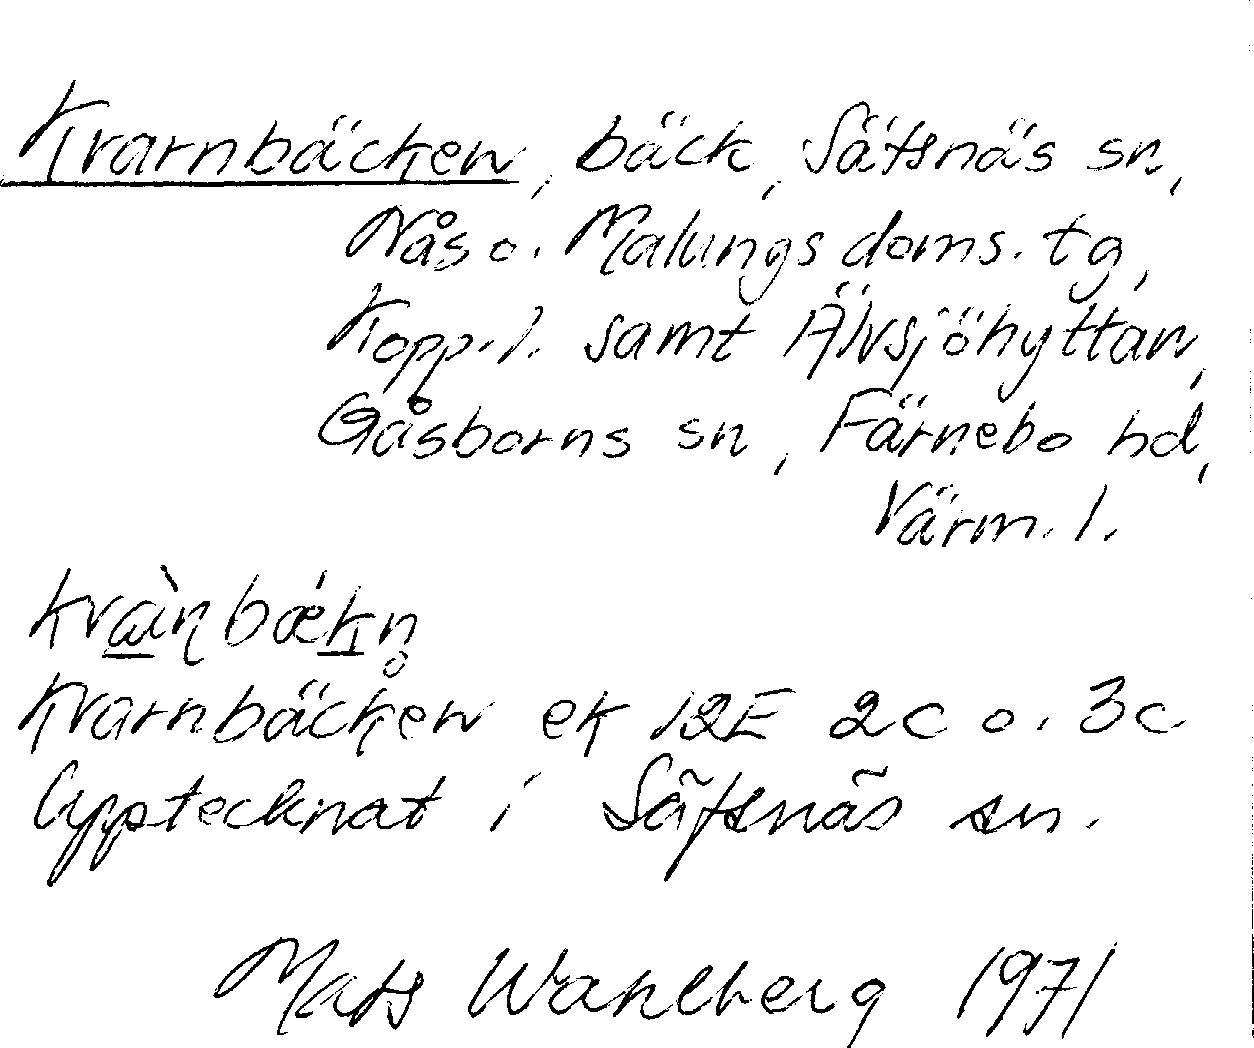 Kvarnbäcken, bäck, Säfsnäs sn,
Nås o. Malungs doms. tg,
Kopp. l. samt Älvsjöhyttan,
Gåsborns sn, Färnebo hd,
Värm. l.
Kvarnbäcken ek 12E 2c o. 3c
Upptecknat i Säfsnäs sn.
Mats Wahlberg 1971